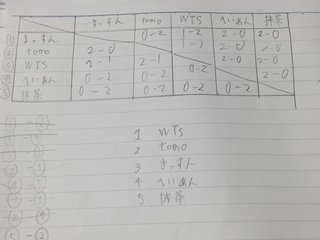 よっすん tomo WTS へいあん 抹茶
① よっすん 0-2 1-2 2-0 2-0
② tomo 2-0 1-2 2-0 2-0
③ WTS 2-1 2-1 2-0 2-0
④ へいあん 0-2 0-2 0-2 2-0
⑤ 抹茶 0-2 0-2 0-2 0-2
①-②
1 WTS
2 tomo
3 よっすん
4 へいあん
5 抹茶
⑤-②